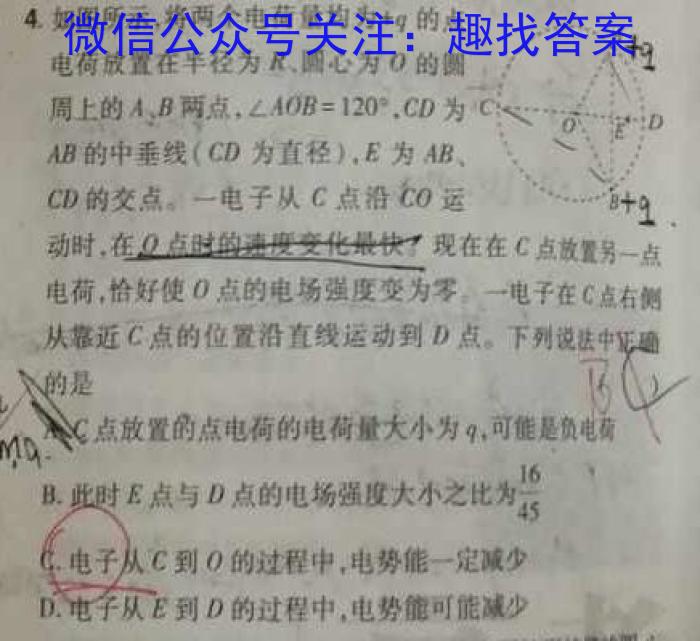 微信公众号关注：趣找答案
4. 如图所示,将两个电荷量均为+q 的点
电荷放置在半径为 R、圆心为 O 的圆
周上的 A、B 两点,∠AOB=120°,CD 为
AB 的中垂线(CD 为直径),E 为 AB、
CD 的交点。一电子从 C 点沿 CO 运
动时,在 O 点时的速度变化最快。现在在 C 点放置另一点
电荷,恰好使 O 点的电场强度变为零。一电子在 C 点右侧
从靠近 C 点的位置沿直线运动到 D 点。下列说法中正确
的是
A. C 点放置的点电荷的电荷量大小为 q,可能是负电荷
B. 此时 E 点与 D 点的电场强度大小之比为16/45
C. 电子从 C 到 O 的过程中,电势能一定减少
D. 电子从 E 到 D 的过程中,电势能可能减少
+q
C
O
E
D
B+q